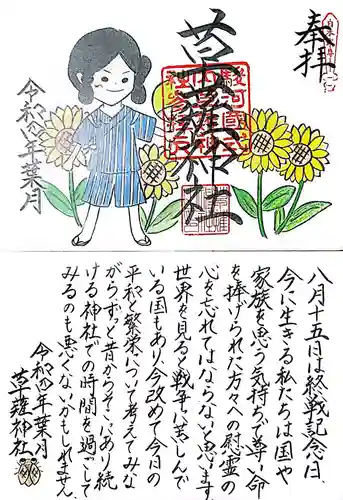 奉拝
草薙神社
駿河國
令和四年葉月
八月十五日は終戦記念日、
今に生きる私たちは国や
家族を思う気持ちで尊い命
を捧げられた方々への慰霊の
心を忘れてはならないと思います
世界を見ると戦争に苦しんで
いる国もあり、今改めて今日の
平和と繁栄について考えてみな
がらずっと昔からそこにあり続
ける神社での時間を過ごして
みるのも悪くないかもしれません
令和四年葉月
草薙神社